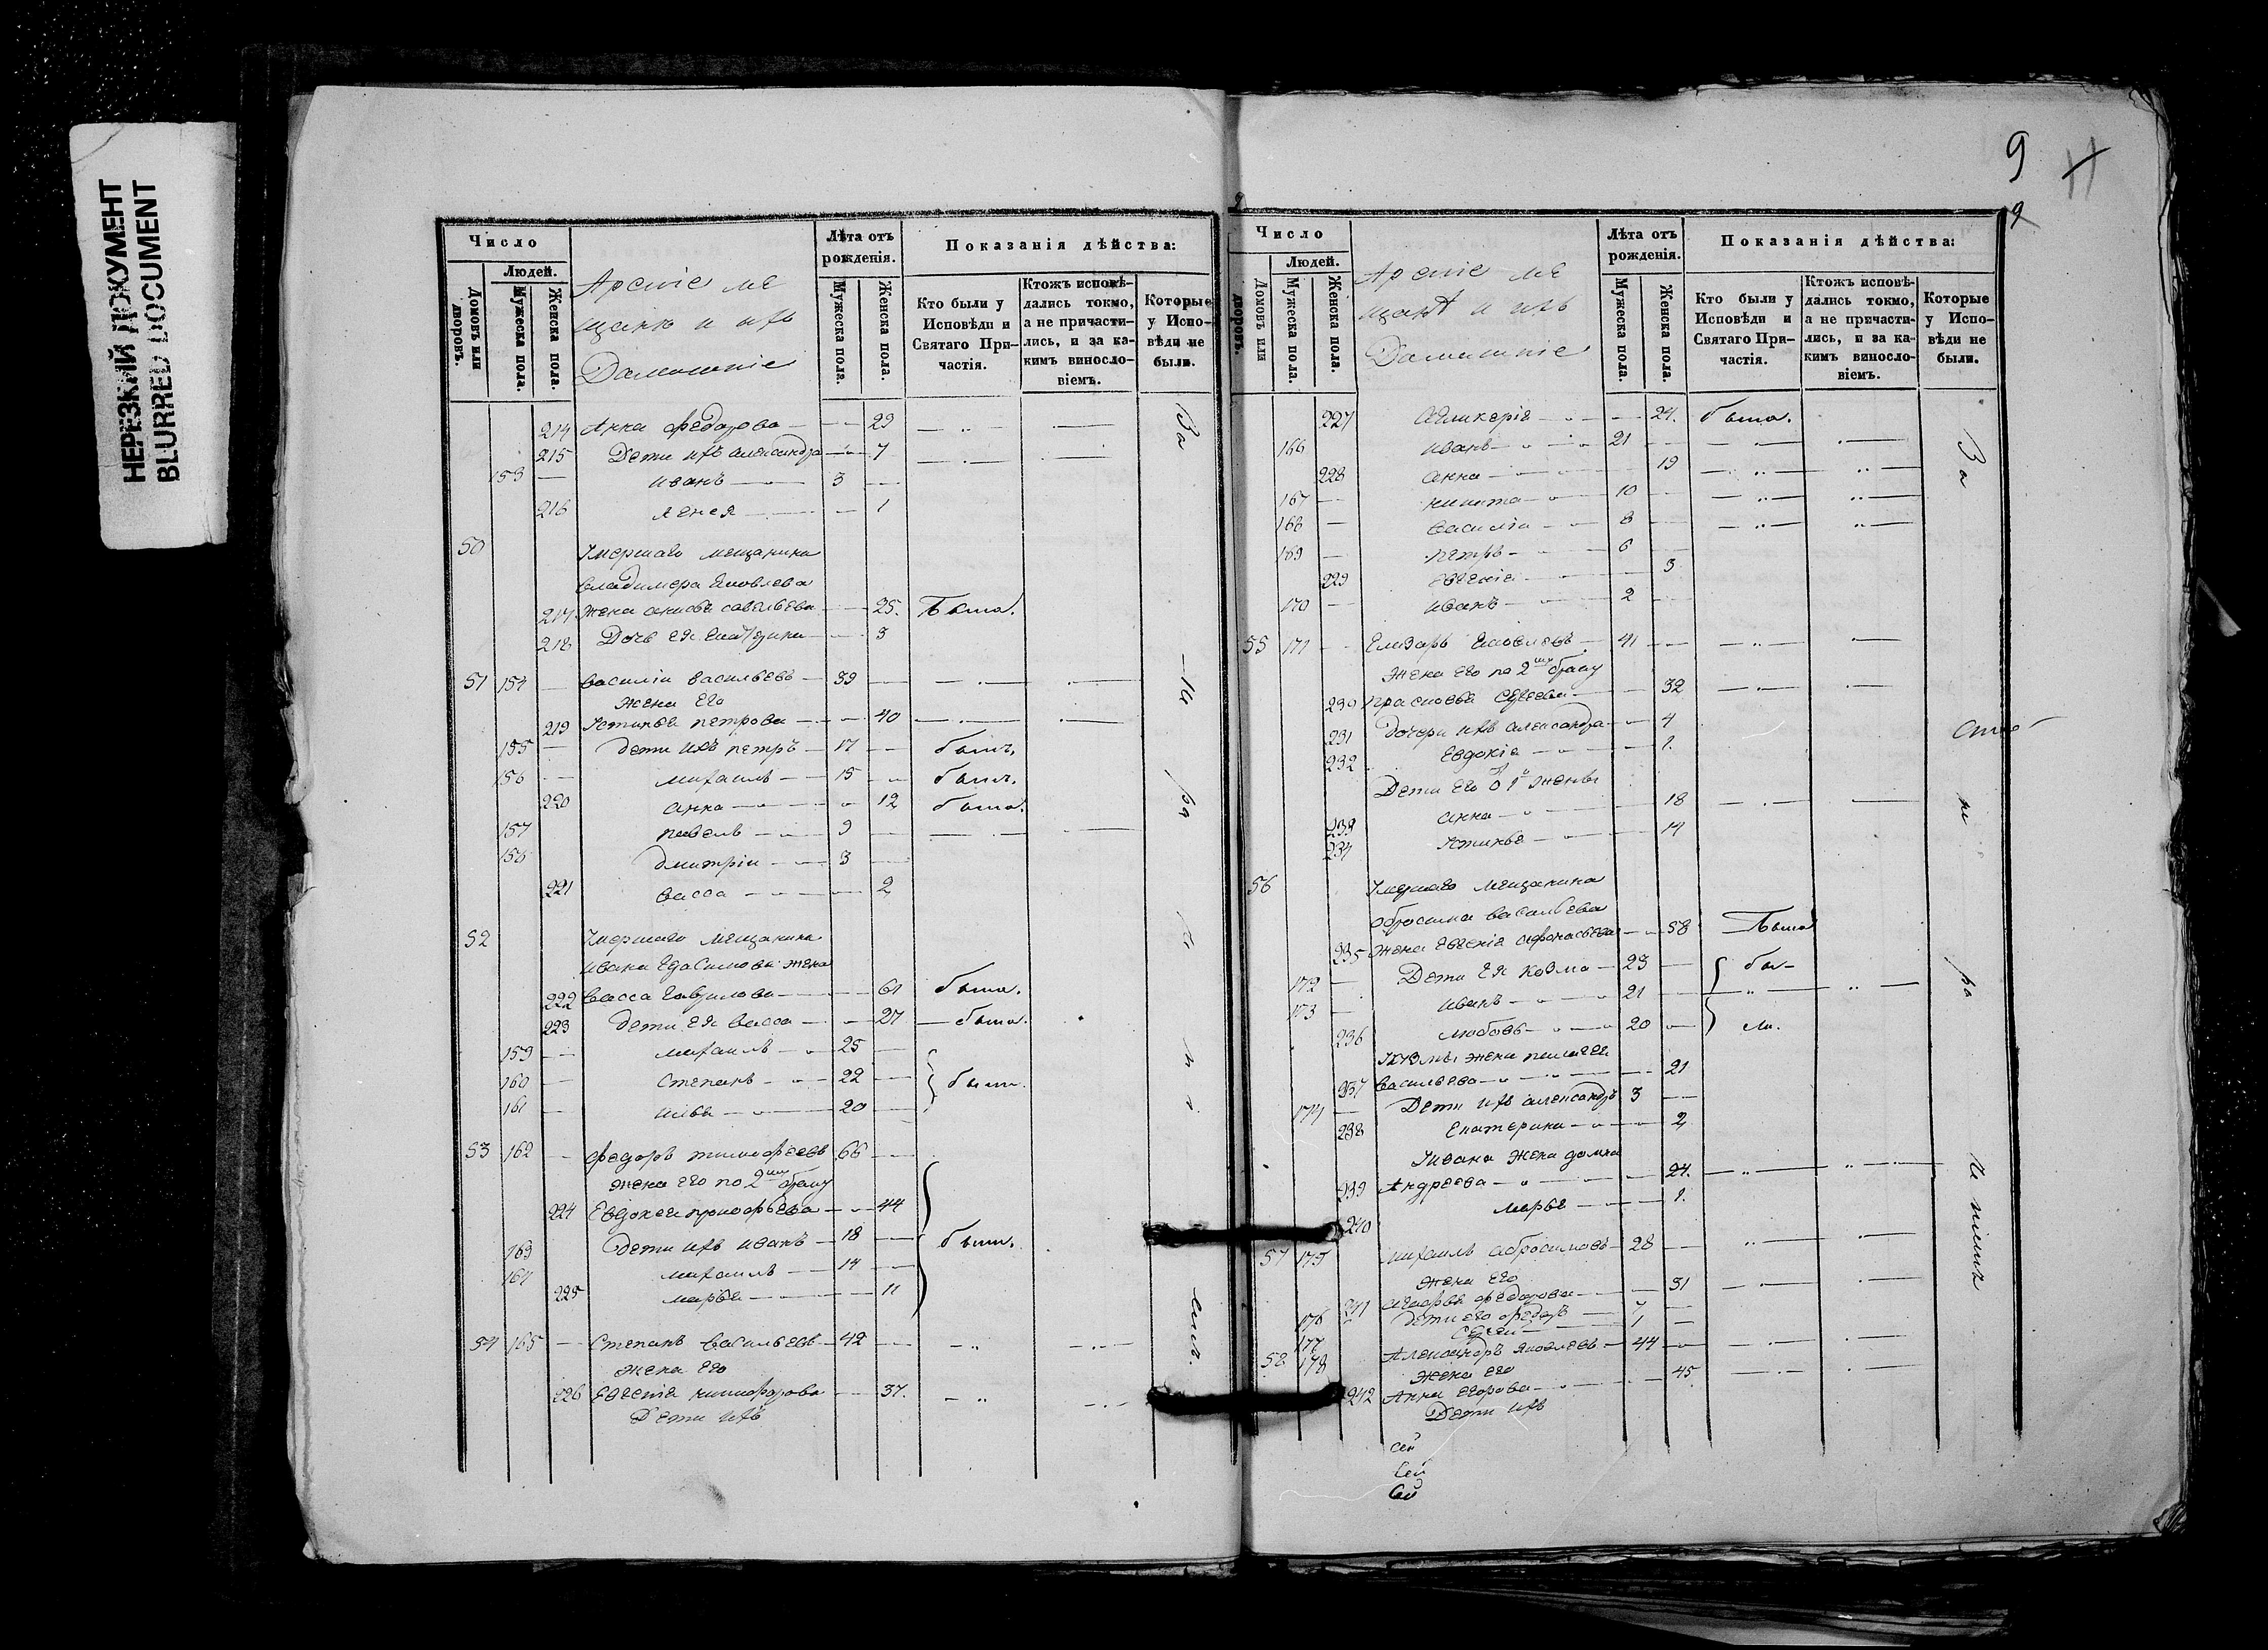 НЕРЕЗКИЙ ДОКУМЕНТ
BLURRED DOCUMENT
Число
Людей.
Домовъ или дворовъ.
Мужеска пола.
Женска пола.
Лѣта отъ рожденія.
Мужеска пола.
Женска пола.
Показанія дѣйства:
Кто были у Исповѣди и Святаго Причастія.
Ктожъ исповѣдались токмо, а не причастились, и за какимъ винословіемъ.
Которые у Исповѣди не были.
ме
щанѣ и ихъ
Домашніе
214 Анна Федорова 29
215 Дети ихъ александра 7
153 иванъ 3
216 1
50 Умершаго мещанина
владимера Яковлева
217 Жена савельева 25. Была.
218 Дочь ея 3
51 154 василіи васильевъ 39
жена его
219 Устинья петрова 40
155 дети ихъ петръ 17 былъ,
156 михаилъ 15 былъ.
220 анна 12 была.
157 павелъ 9
158 дмитріи 3
221 васса 2
52 Умершаго мещанина
ивана жена
222 Васса Гаврилова 61 была.
223 дети ея васса 27 была.
159 михаилъ 25
160 степанъ 22 были.
161 илья 20
53 162 федоръ тимофеевъ 66
жена его по 2му браку
224 Евдокея прокофьева 44
163 дети ихъ иванъ 18 были.
164 михаилъ 14
225 марья 11
54 165 Степанъ Васильевъ 42
жена его
226 Евгенія никифорова 37.
Дети ихъ
9
11
9
Число
Людей.
Домовъ или дворовъ.
Мужеска пола.
Женска пола.
Лѣта отъ рожденія.
Мужеска пола.
Женска пола.
Показанія дѣйства:
Кто были у Исповѣди и Святаго Причастія.
Ктожъ исповѣдались токмо, а не причастились, и за какимъ винословіемъ.
Которые у Исповѣди не были.
ме
щанѣ и ихъ
Домашніе
227 24. была.
166 иванъ 21
228 анна 19
167 никита 10
168 василіи 8
169 петръ 6
229 евгенія 3
170 иванъ 2
55 171 Елизаръ Яковлевъ 41
жена его по 2му браку
230 Прасковья 32
231 дочери ихъ александра 4
232 Евдокія 1.
Дети его 1й жены
233 анна 18
234 Устинья 14
56 Умершаго мещанина
обросима васильева
235 жена Евгенія афонасьева 58 Была
172 Дети ея Козма 23 бы-
173 иванъ 21
236 любовь 20 ли.
жена пелагея
237 васильева 21
174 Дети ихъ александръ 3
238 Екатерина 2
Ивана жена домна
239 Андреева 24.
240 марья 1.
57 175 михаилъ абросимовъ 28
жена его
241 федорова 31
176 дети его федоръ 7
177 1
58 178 Александръ Яковлевъ 44
жена его
242 Анна Егорова 45
Дети ихъ